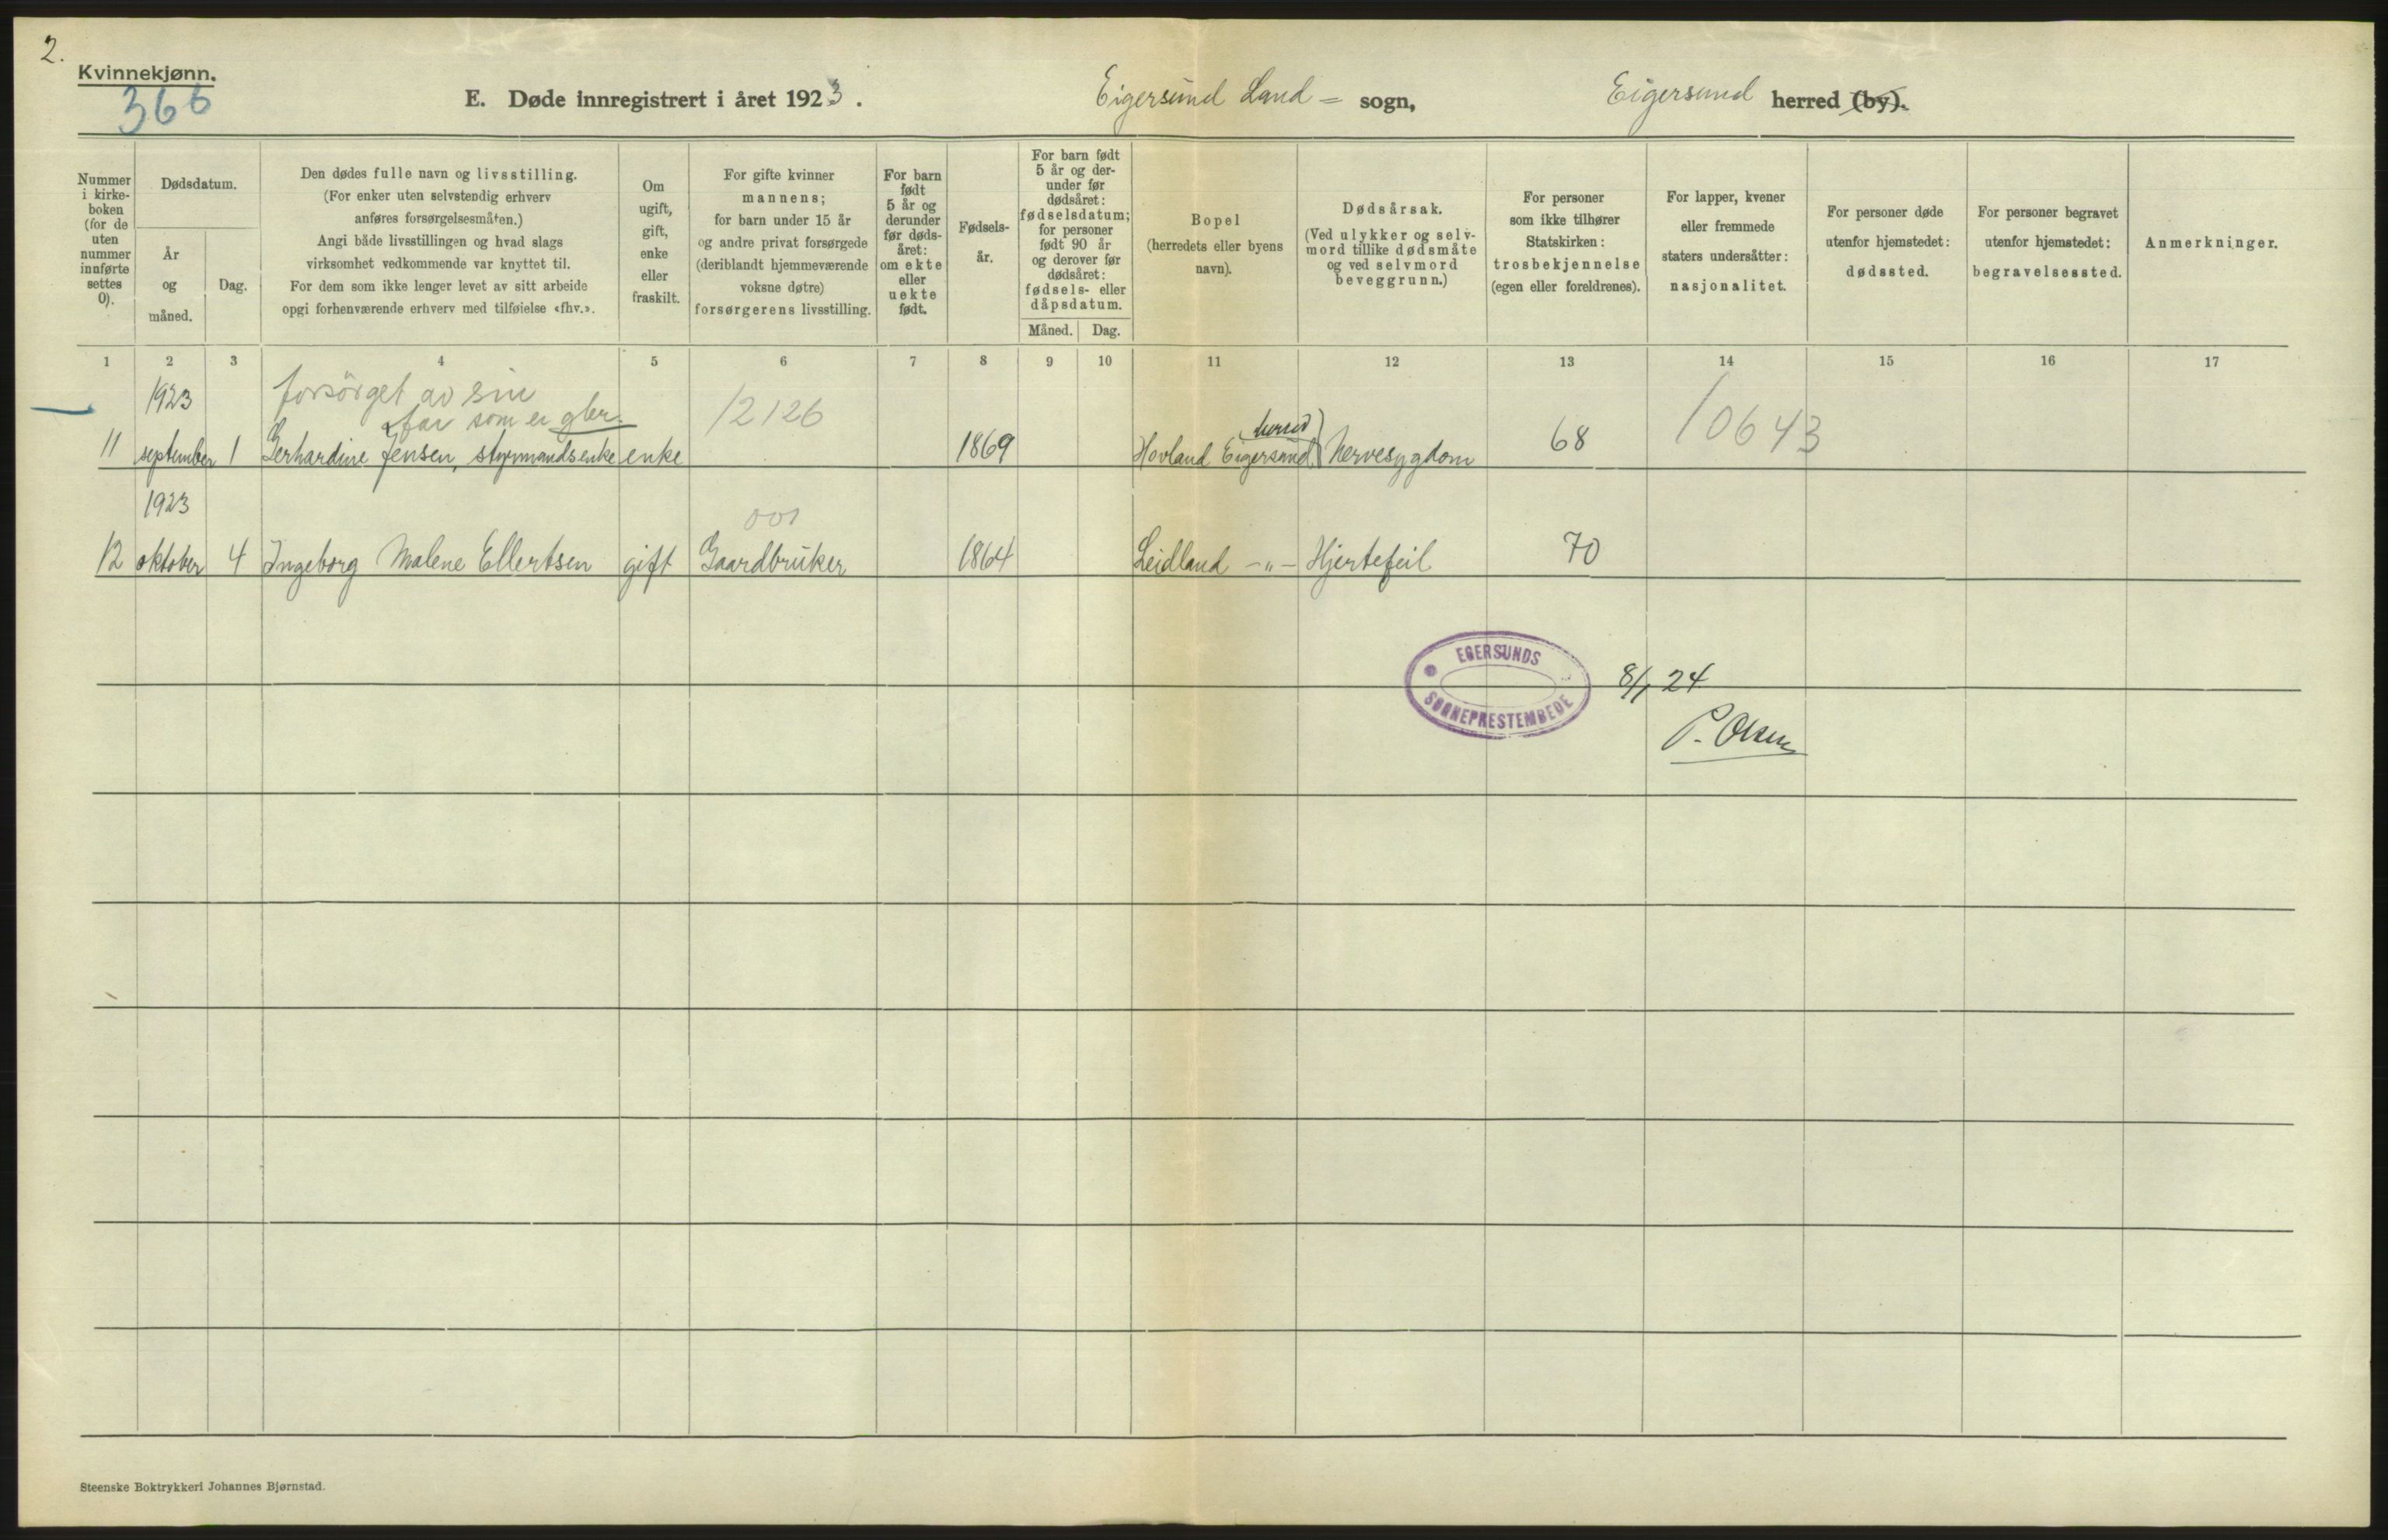 2.
Kvinnekjønn.
366
E. Døde innregistrert i året 1923.
Eigersund Land= sogn,
Eigersund herred (by).
Nummer
i kirke-
boken
(for de
uten
nummer
innførte
settes
0).
Dødsdatum.
År
og
måned.
Dag.
Den dødes fulle navn og livsstilling.
(For enker uten selvstendig erhverv
anføres forsørgelsesmåten.)
Angi både livsstillingen og hvad slags
virksomhet vedkommende var knyttet til.
For dem som ikke lenger levet av sitt arbeide
opgi forhenværende erhverv med tilføielse «fhv.».
Om
ugift,
gift,
enke
eller
fraskilt.
For gifte kvinner
mannens;
for barn under 15 år
og andre privat forsørgede
(deriblandt hjemmeværende
voksne døtre)
forsørgerens livsstilling.
For barn
født
5 år og
derunder
før døds-
året:
om ekte
eller
uekte
født.
Fødsels-
år.
For barn født
5 år og der-
under før
dødsåret:
fødselsdatum;
for personer
født 90 år
og derover før
dødsåret:
fødsels- eller
dåpsdatum.
Måned. Dag.
Bopel
(herredets eller byens
navn).
Dødsårsak.
(Ved ulykker og selv-
mord tillike dødsmåte
og ved selvmord
beveggrunn.)
For personer
som ikke tilhører
Statskirken:
trosbekjennelse
(egen eller foreldrenes).
For lapper, kvener
eller fremmede
staters undersåtter:
nasjonalitet.
For personer døde
utenfor hjemstedet:
dødssted.
For personer begravet
utenfor hjemstedet:
begravelsessted.
Anmerkninger.
1 2 3 4 5 6 7 8 9 10 11 12 13 14 15 16 17
1923 forsörget av sin 12126 10643
far som er gbr. herred
11 september 1 Gerhardine Jensen, styrmandsenke enke 1869 Hovland Eigersund Nervesygdom 68
1923 001
12 oktober 4 Ingeborg Malene Ellertsen gift Gaardbruker 1864 Leidland -"- Hjertefeil 70
EGERSUNDS
SOGNEPRESTEMBEDE
8/1 24
P. Olsen
Steenske Boktrykkeri Johannes Bjørnstad.